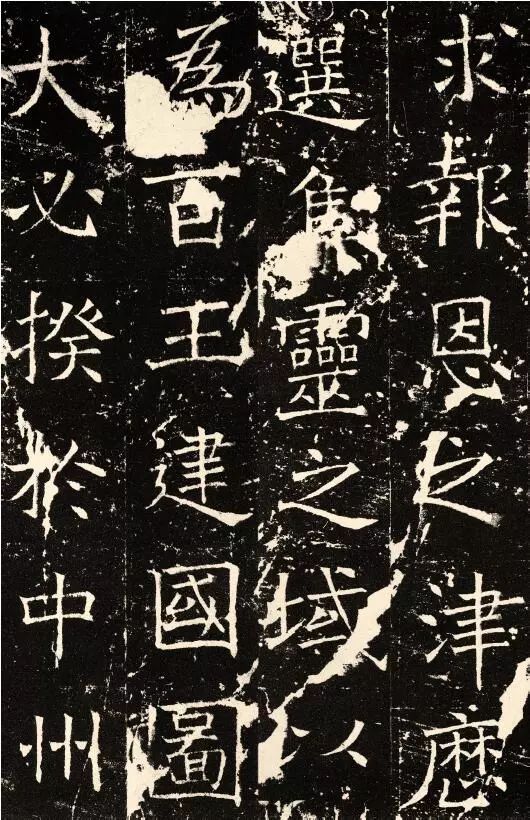 求報恩之津歷
選集靈之域以
為百王建國圖
大必揆於中州